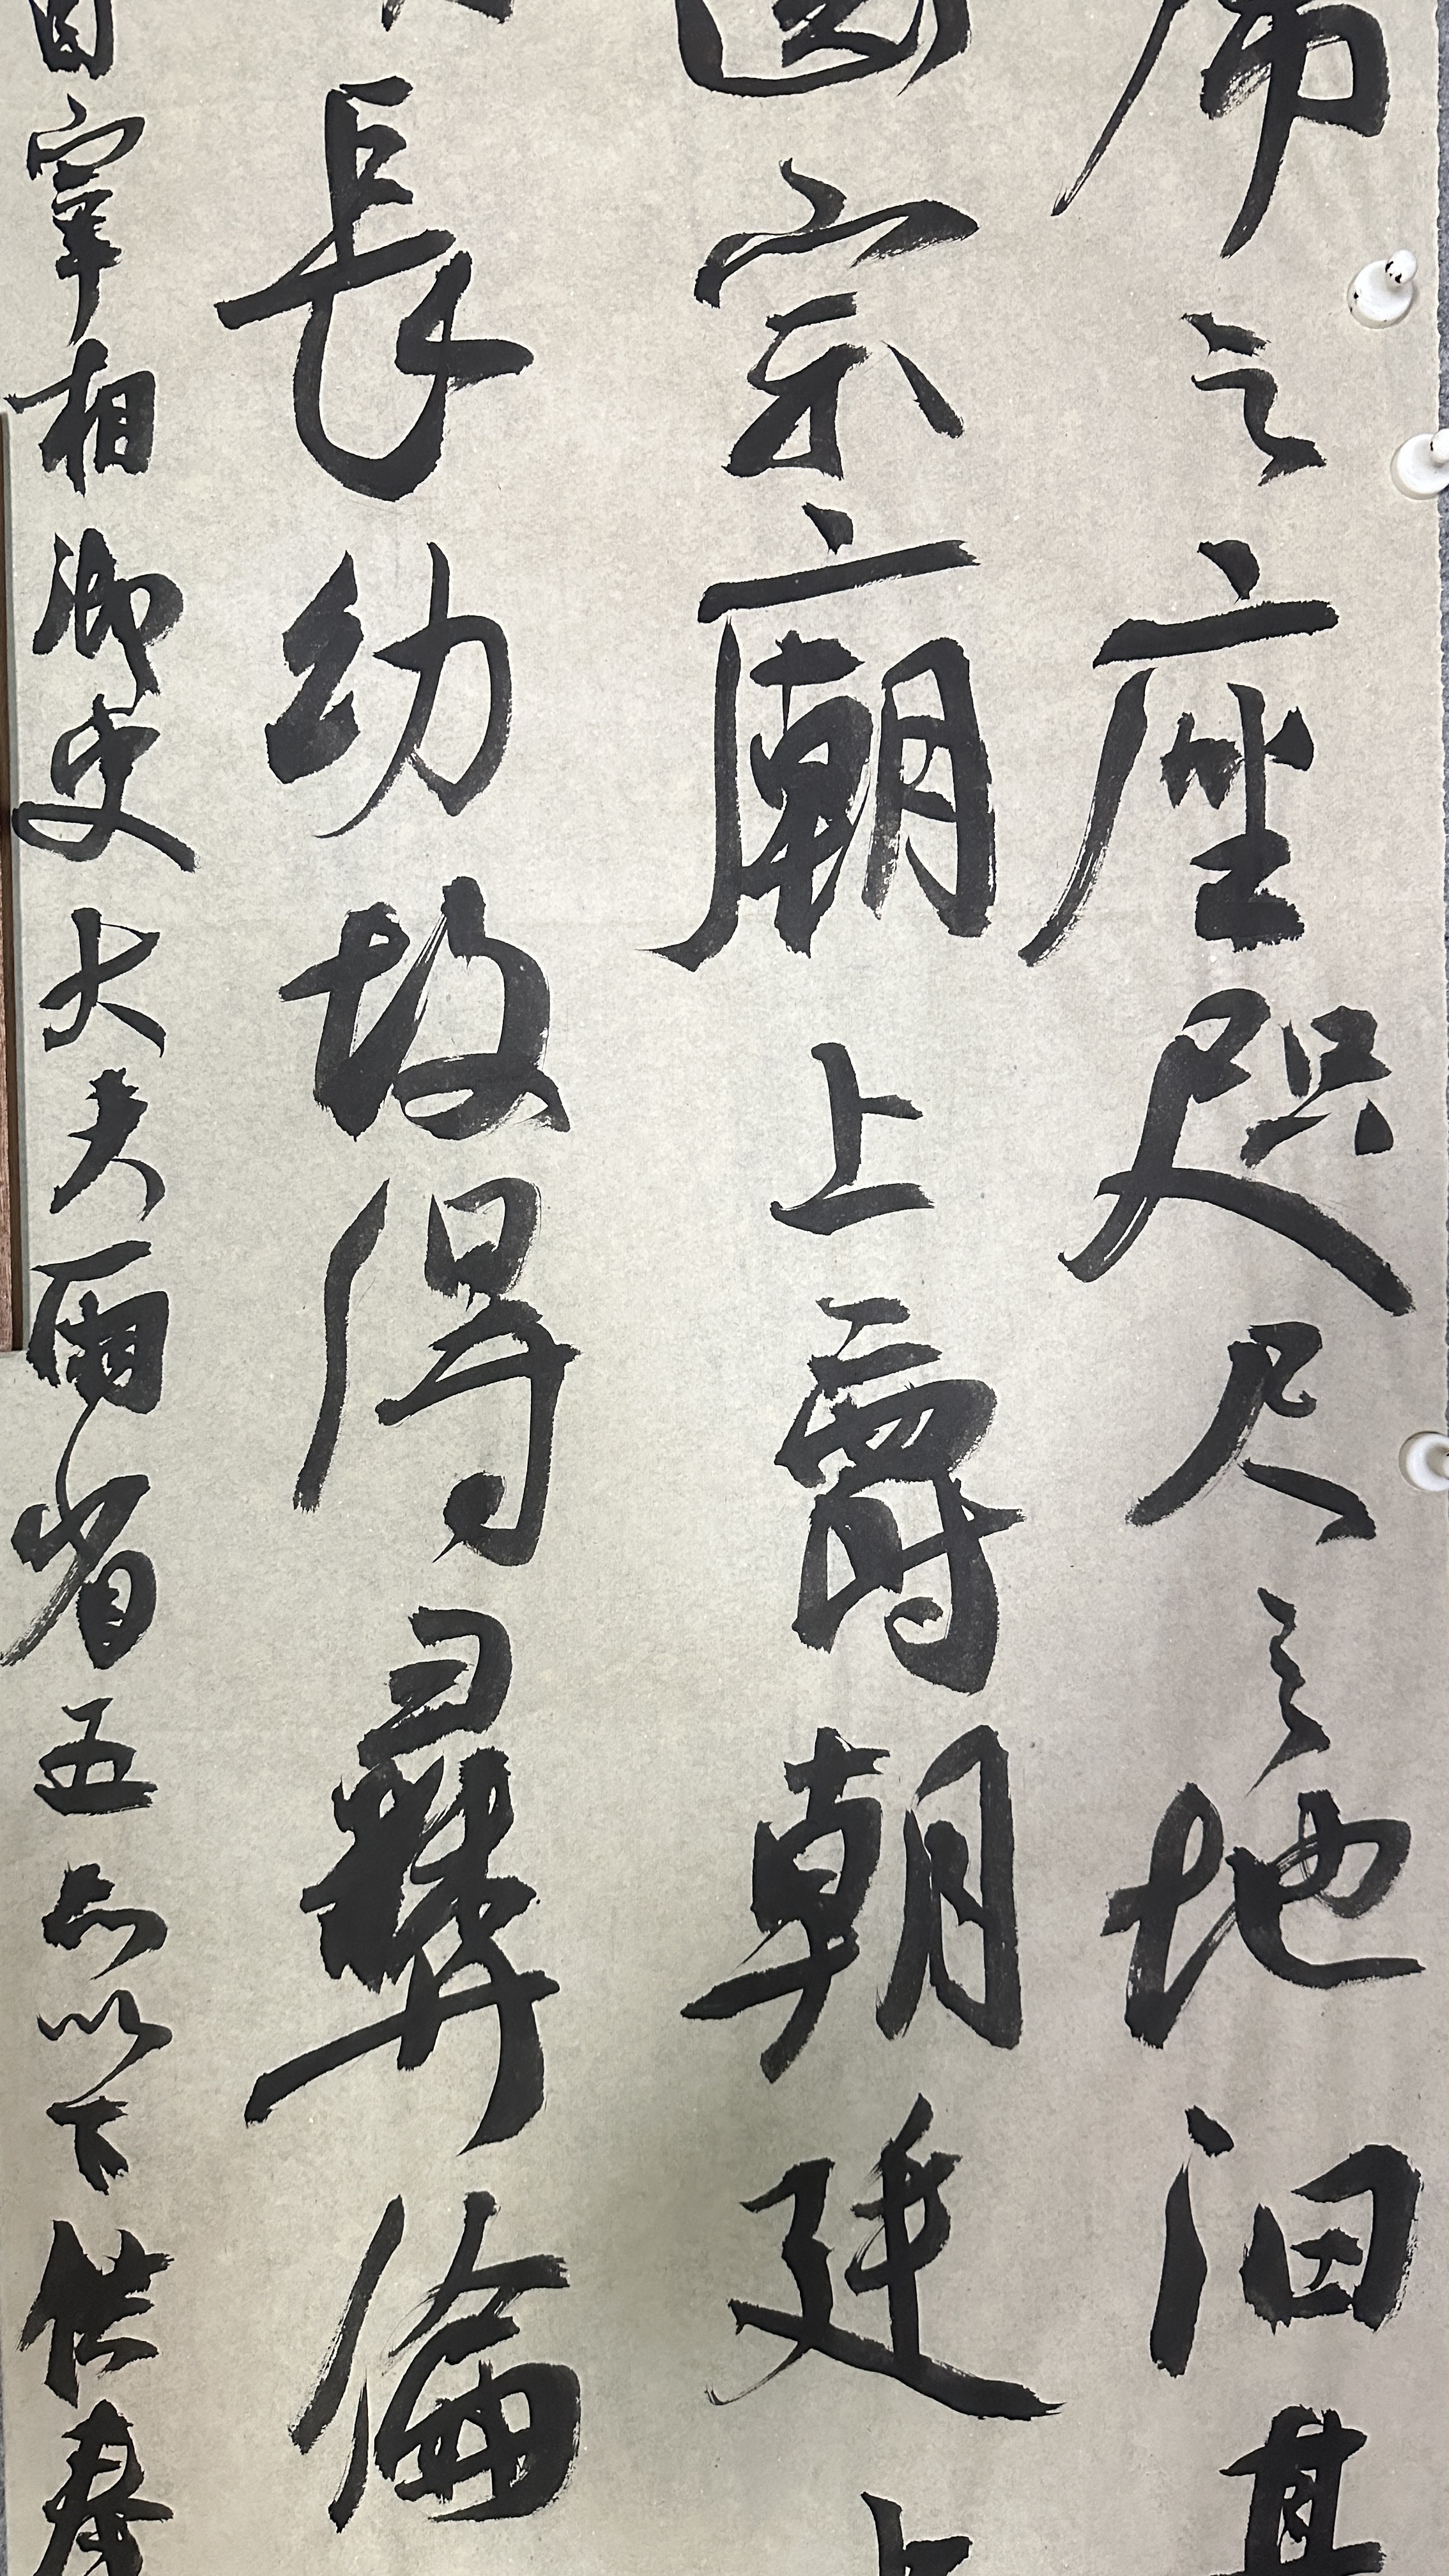 席之座咫尺之地汩其
齒宗廟上爵朝廷上
長幼故得彝倫
自宰相御史大夫兩省五品以下供奉